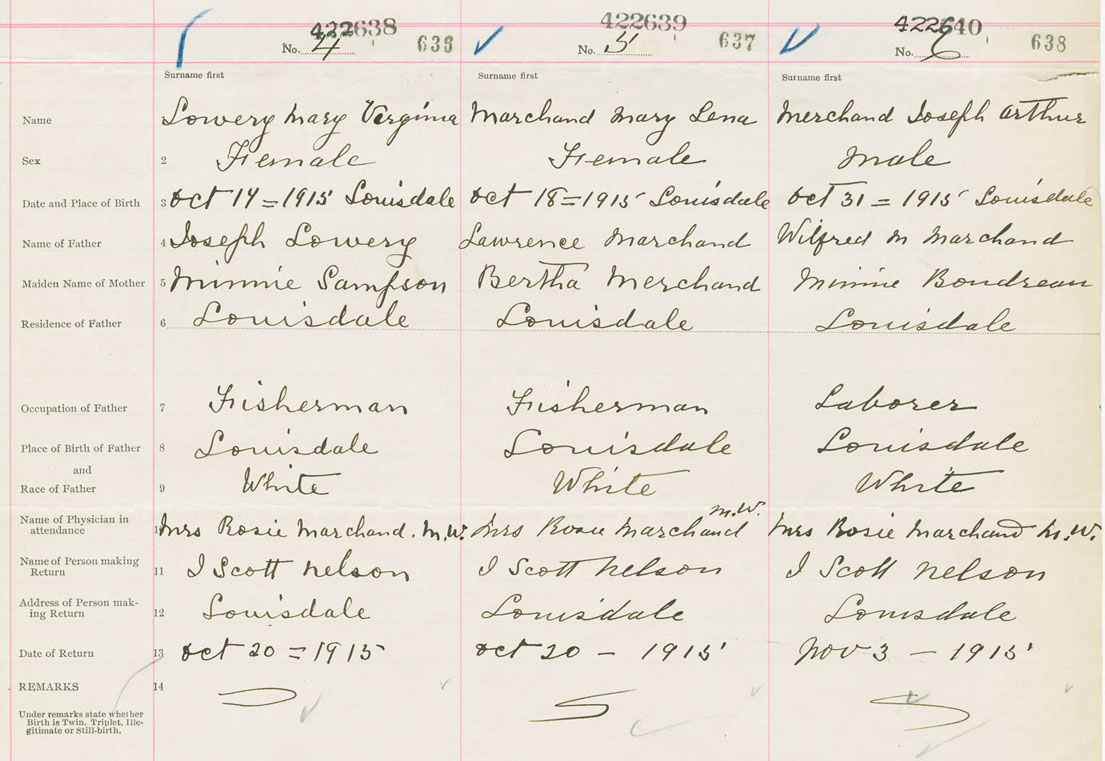 422638 422639 422640
No. 4 636 No. 5 637 No. 6 638
Surname first Surname first Surname first
Name Lowery Mary Verginia Marchand Mary Lena Merchand Joseph Arthur
Sex 2 Female Female Male
Date and Place of Birth 3 Oct 14 = 1915 Louisdale Oct 18 = 1915 Louisdale Oct 31 = 1915 Louisdale
Name of Father 4 Joseph Lowery Lawrence Marchand Wilfred M Marchand
Maiden Name of Mother 5 Minnie Sampson Bertha Merchand Minnie Boudreau
Residence of Father 6 Louisdale Louisdale Louisdale
Occupation of Father 7 Fisherman Fisherman Laborer
Place of Birth of Father 8 Louisdale Louisdale Louisdale
and
Race of Father 9 White White White
Name of Physician in
attendance 10 Mrs Rosie Marchand. M.W. Mrs Rosie Marchand M.W. Mrs Rosie Marchand M.W.
Name of Person making
Return 11 I Scott Nelson I Scott Nelson I Scott Nelson
Address of Person mak-
ing Return 12 Louisdale Louisdale Louisdale
Date of Return 13 Oct 20 = 1915 Oct 20 - 1915 Nov 3 - 1915
REMARKS 14
Under remarks state whether
Birth is Twin, Triplet, Ille-
gitimate or Still-birth.